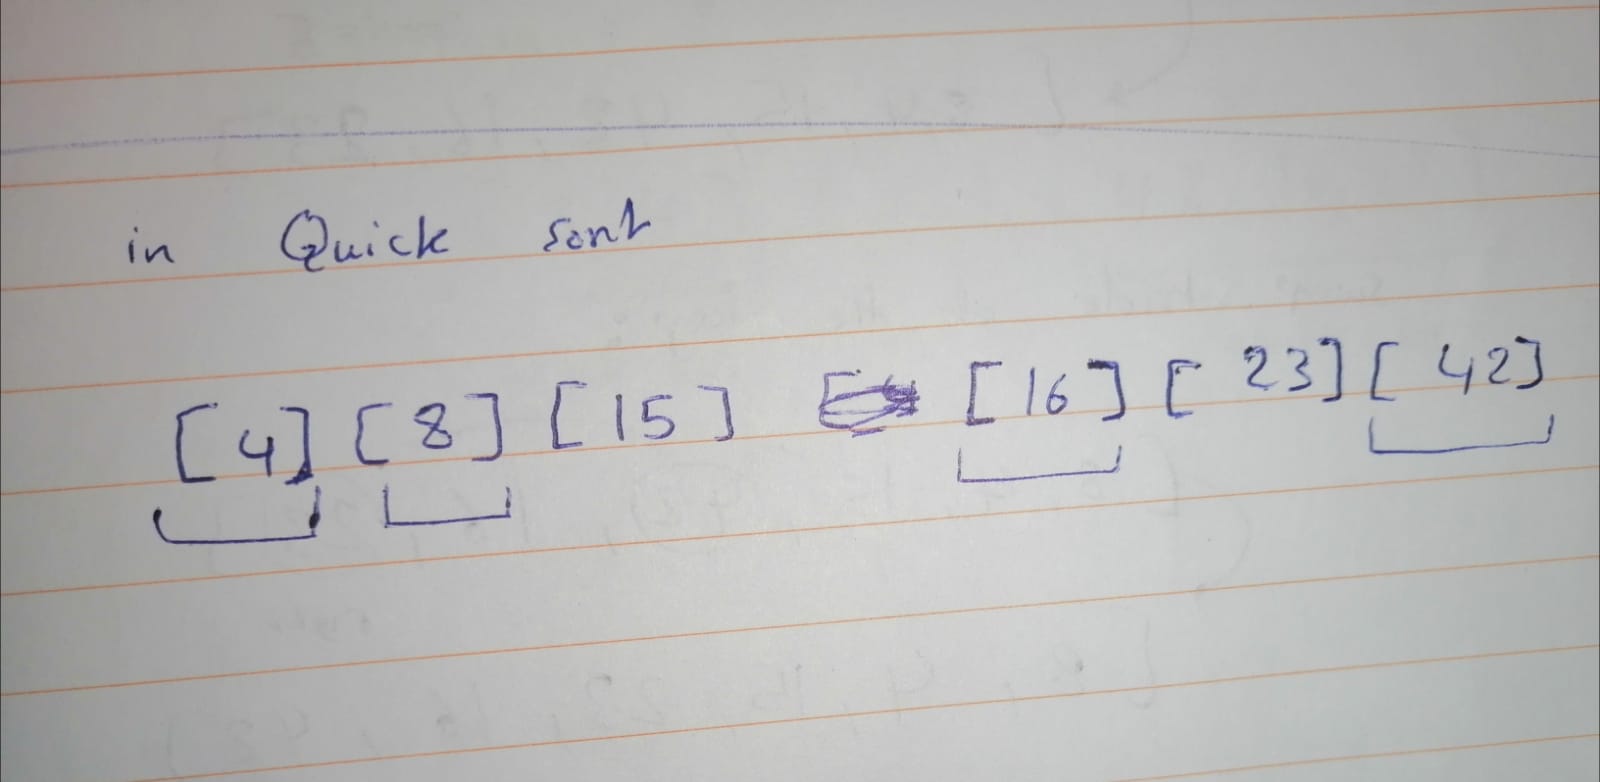 in Quick sort
[4] [8] [15] [16] [23] [42]